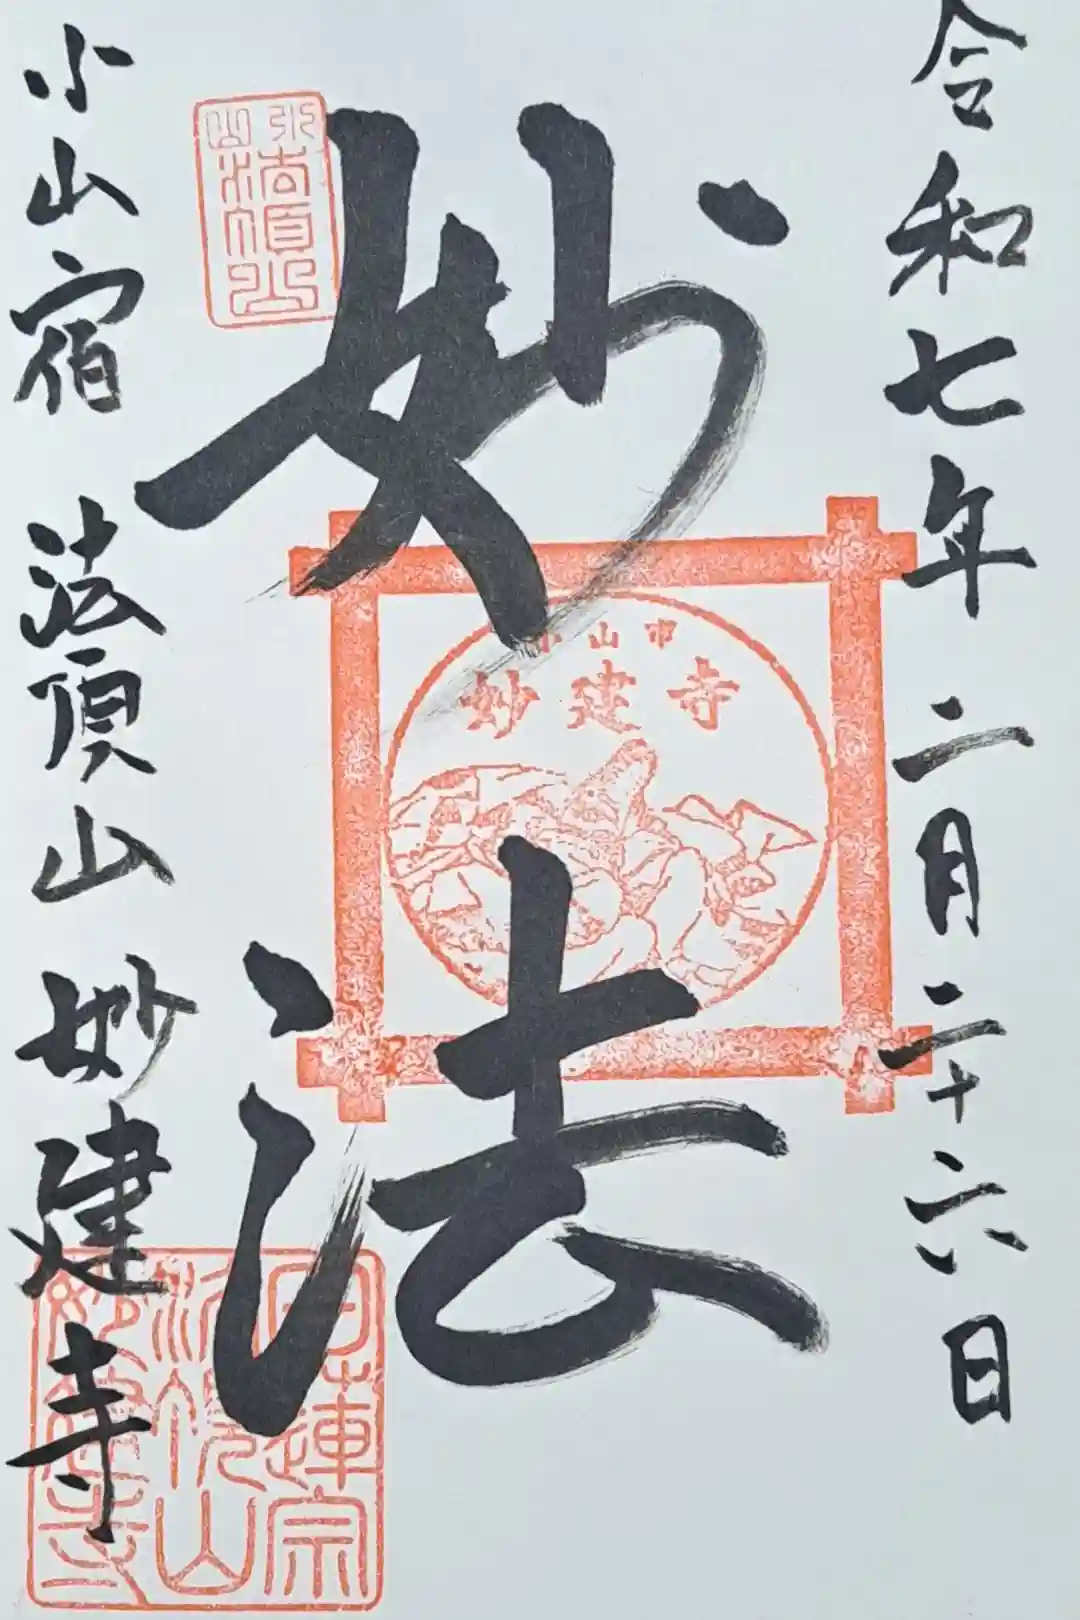 令和七年二月二十六日
妙法
小山市
妙建寺
小山宿 法頂山 妙建寺
日蓮宗
妙建寺